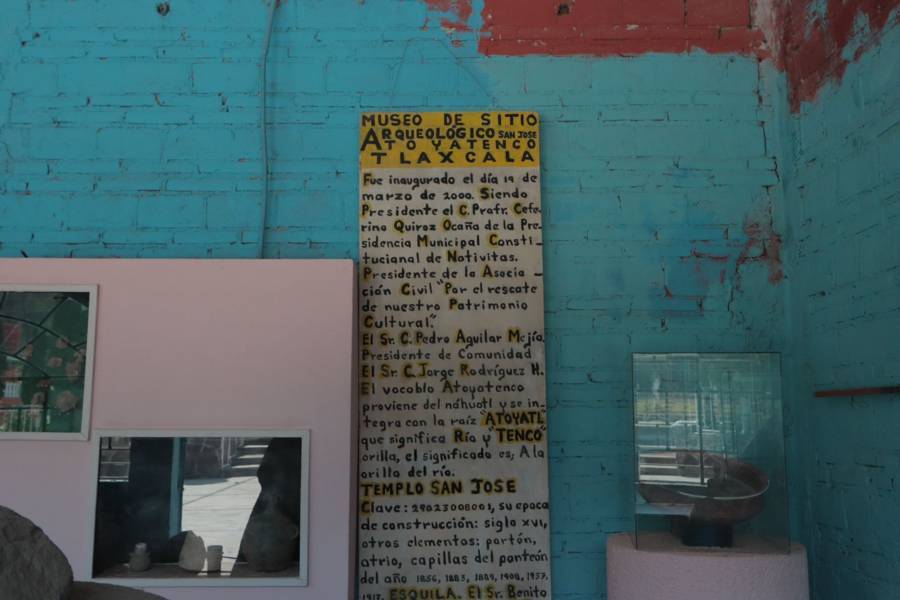 MUSEO DE SITIO
ARQUEOLÓGICO SAN JOSE
ATOYATENCO
TLAXCALA
Fue inaugurado el día 19 de
marzo de 2000. Siendo
Presidente el C. Profr. Cefe-
rino Quiroz Ocaña de la Pre-
sidencia Municipal Consti-
tucional de Nativitas.
Presidente de la Asocia-
ción Civil "Por el rescate
de nuestro Patrimonio
Cultural".
El Sr. C. Pedro Aguilar Mejía.
Presidente de Comunidad
El Sr. C. Jorge Rodríguez H.
El vocablo Atoyatenco
proviene del náhuatl y se in-
tegra con la raíz "ATOYATL"
que significa Río y "TENCO"
orilla, el significado es; A la
orilla del río.
TEMPLO SAN JOSE
Clave: 29023008001, su epoca
de construcción: siglo XVI,
otros elementos: portón,
atrio, capillas del panteón
del año 1856, 1883, 1889, 1908, 1937,
ESQUILA. El Sr. Benito